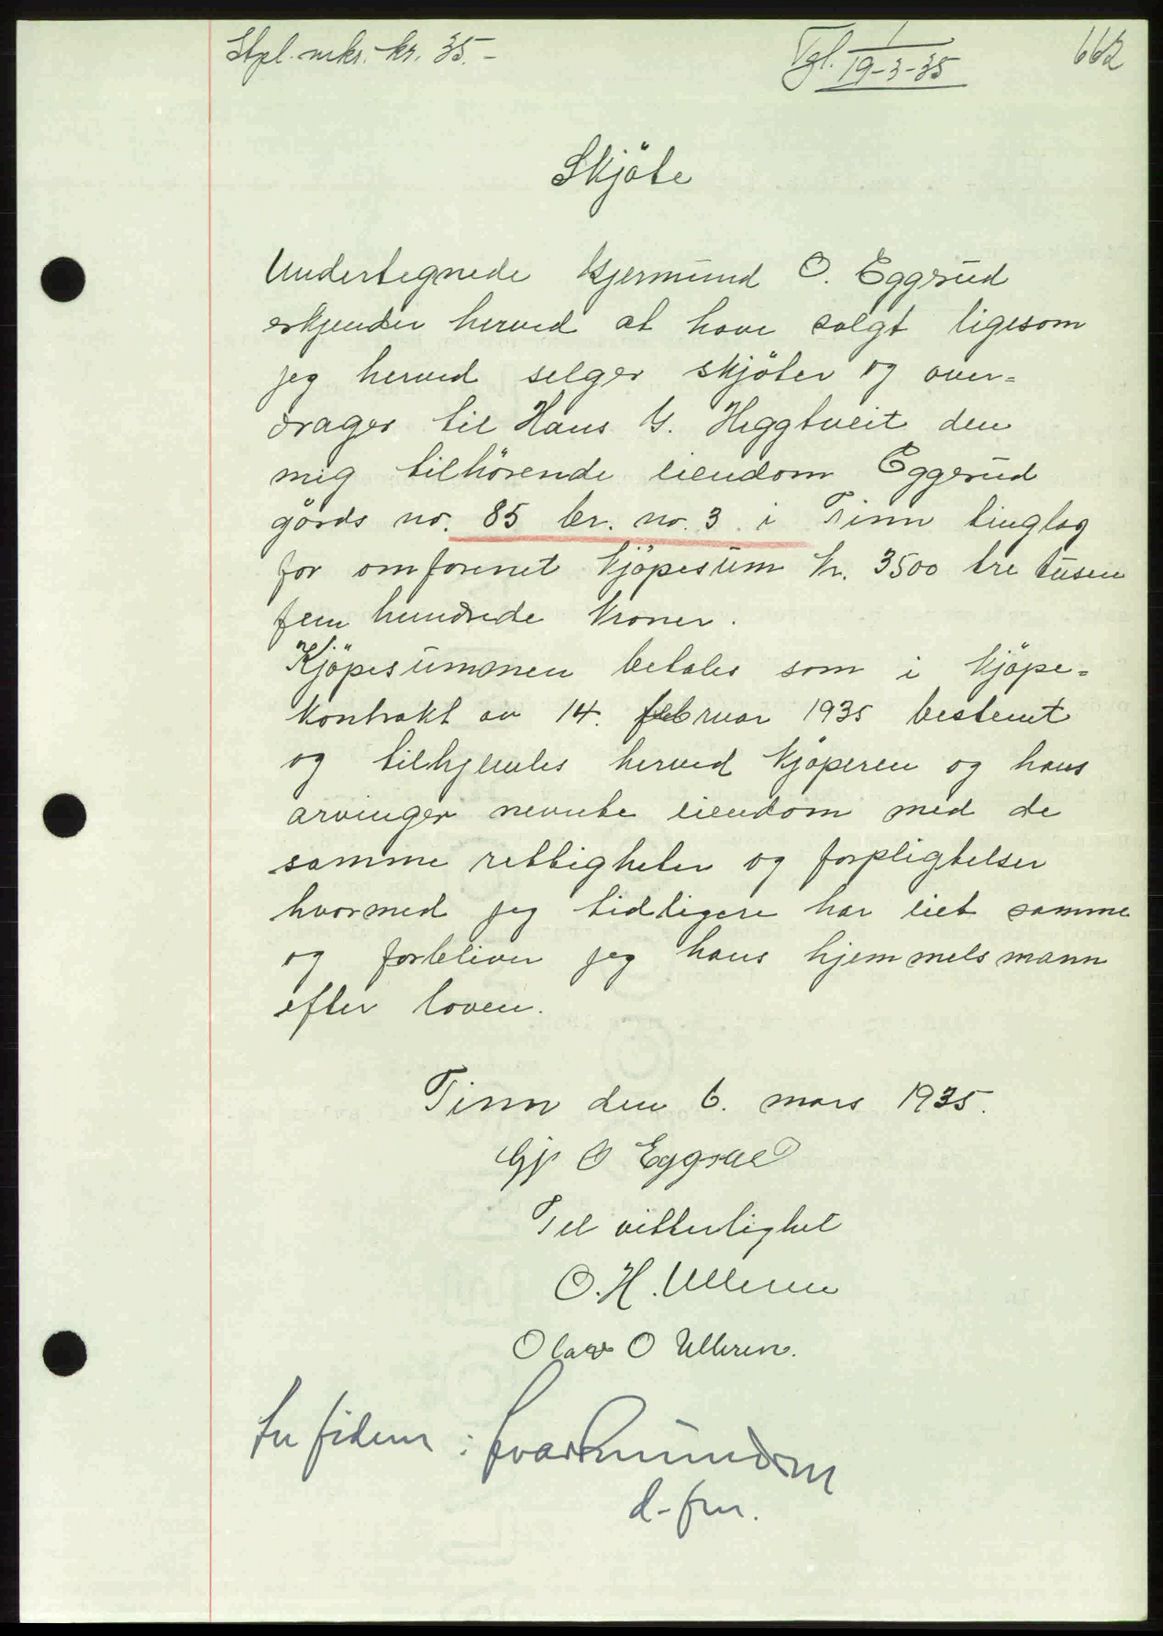 Stpl. mkr. kr. 35.-
Tgl. 1/19-3-35
662
Skjöte
Undertegnede Gjermund O. Eggerud
erkjender herved at have solgt ligesom
jeg herved selger skjöter og over=
drager til Hans G. Heggtveit den
mig tilhörende eiendom Eggerud
gårds no. 85 br. no. 3 i Tinn tinglag
for omforenet kjöpesum kr. 3500 tre tusen
fem hundrede kroner.
Kjöpesummen betales som i kjöpe=
kontrakt av 14. februar 1935 bestemt
og tilhjemles herved kjöperen og hans
arvinger nevnte eiendom med de
samme rettigheter og forpligtelser
hvormed jeg tidligere har eiet samme
og forbliver jeg hans hjemmelsmann
efter loven.
Tinn den 6. mars 1935.
Gj O Eggerud
Til vitterlighet
O. H. Ulleren
Olav O Ulleren.
In fidem:
d-fm.